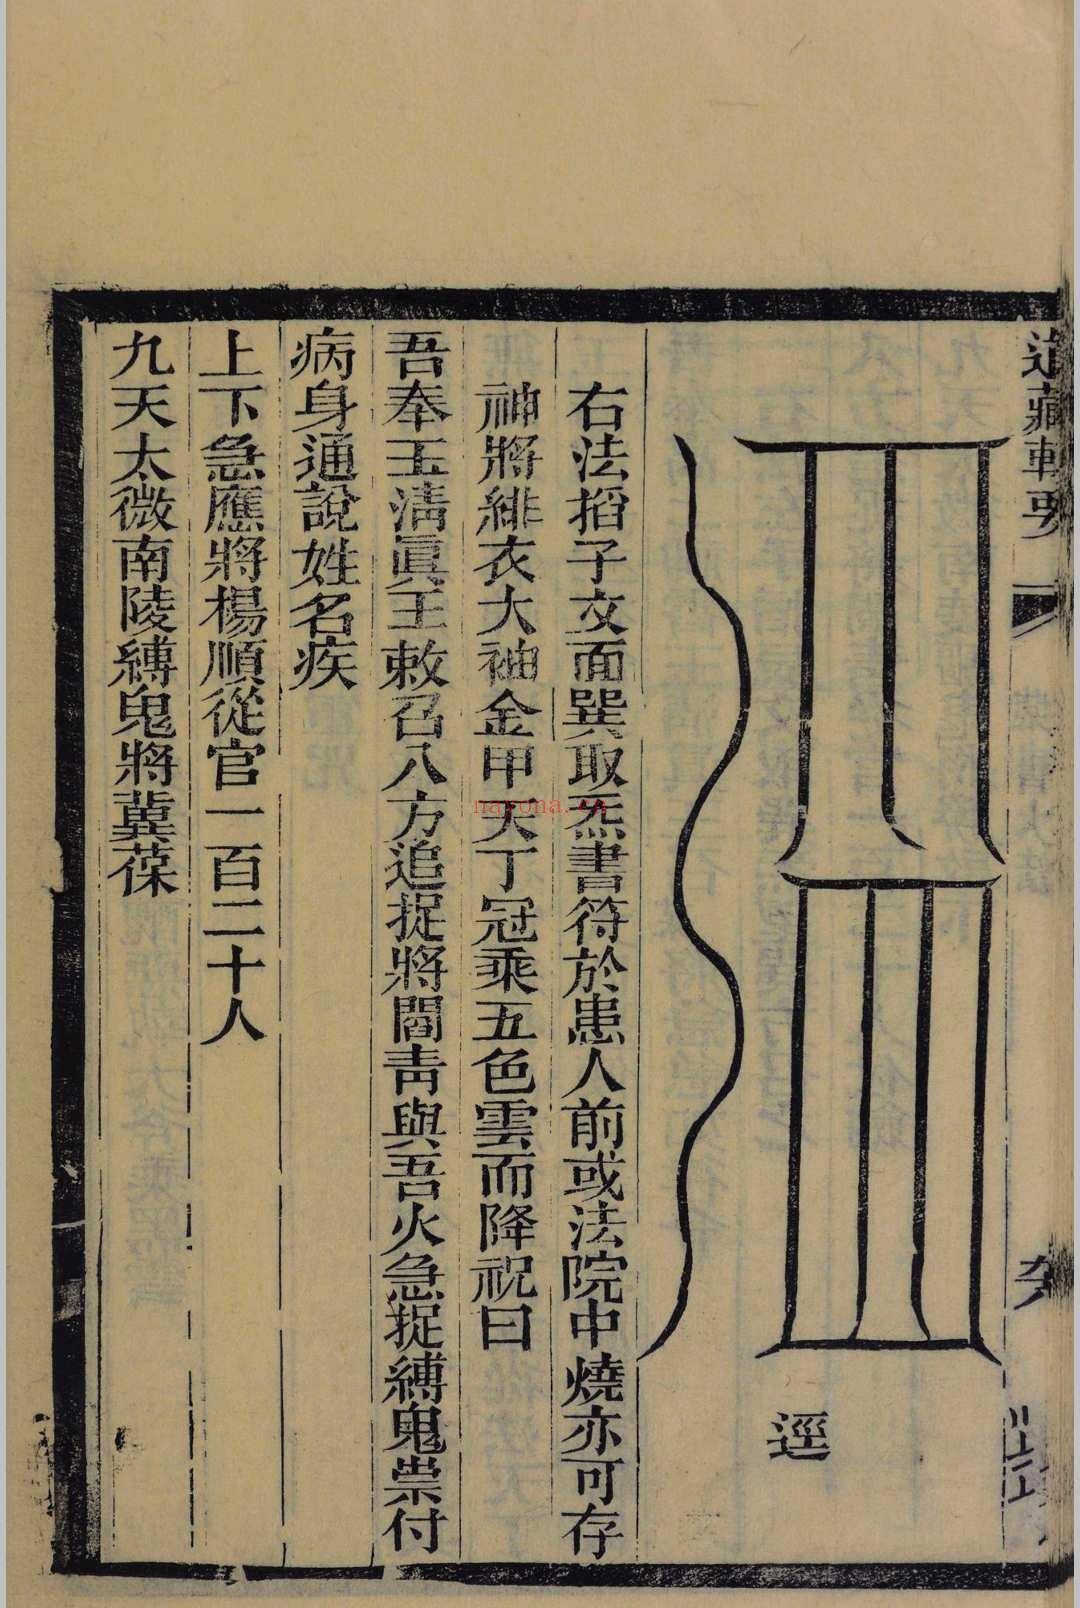 道藏輯要
逕
右法搯子文面巽取炁書符於患人前或法院中燒亦可存
神將緋衣大袖金甲天丁冠乘五色雲而降祝曰
吾奉玉清眞王敕召八方追捉將閻靑與吾火急捉縛鬼祟付
病身通說姓名疾
上下急應將楊順從官一百二十人
九天太微南陵縛鬼將冀葆